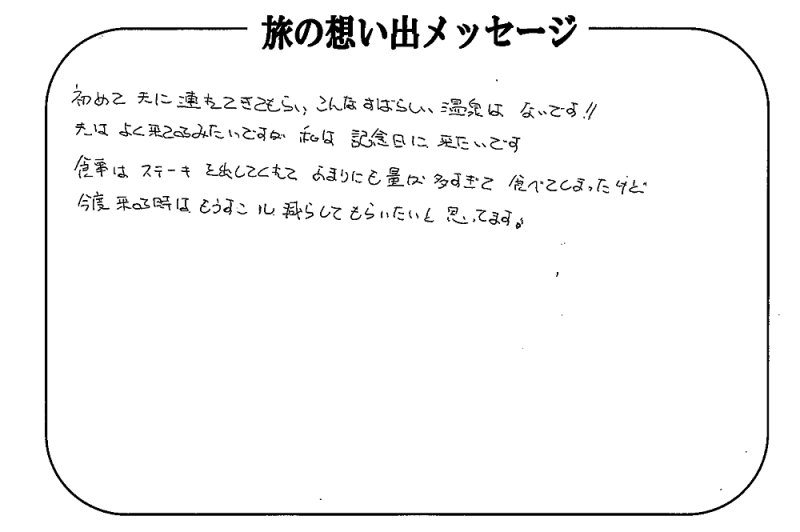 旅の想い出メッセージ
初めて 夫に 連れてきてもらい、こんな すばらしい、温泉は ないです!!
夫は よく来てるみたいですが 私は 記念日に 来たいです
食事は ステーキ を出してくれて あまりにも量が 多すぎて 食べてしまったけど
今度 来る時は もうすこし 減らして もらいたいと 思ってます。